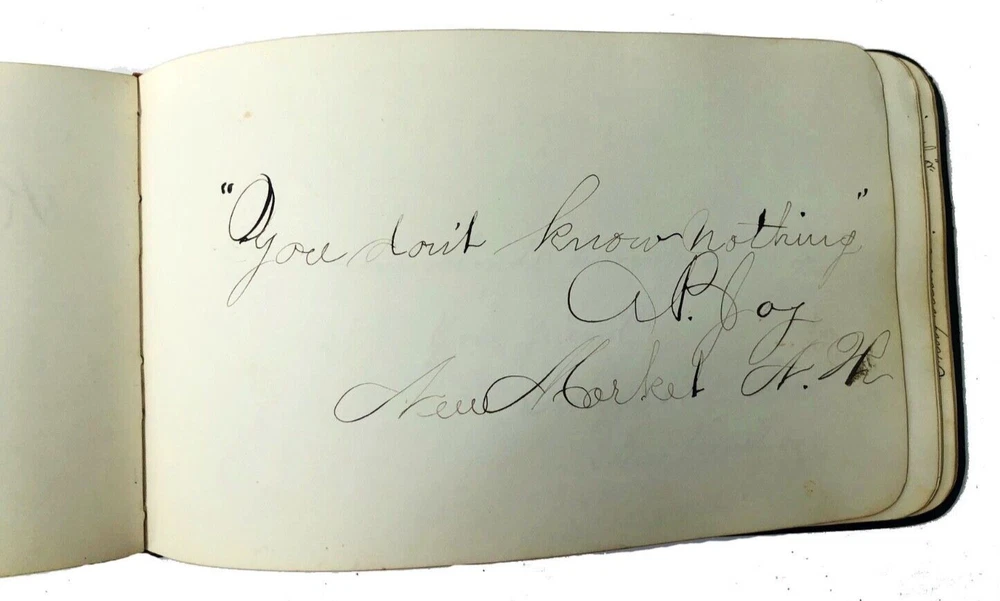 "You don't know nothing"
A. P. Joy
New Market N. H.